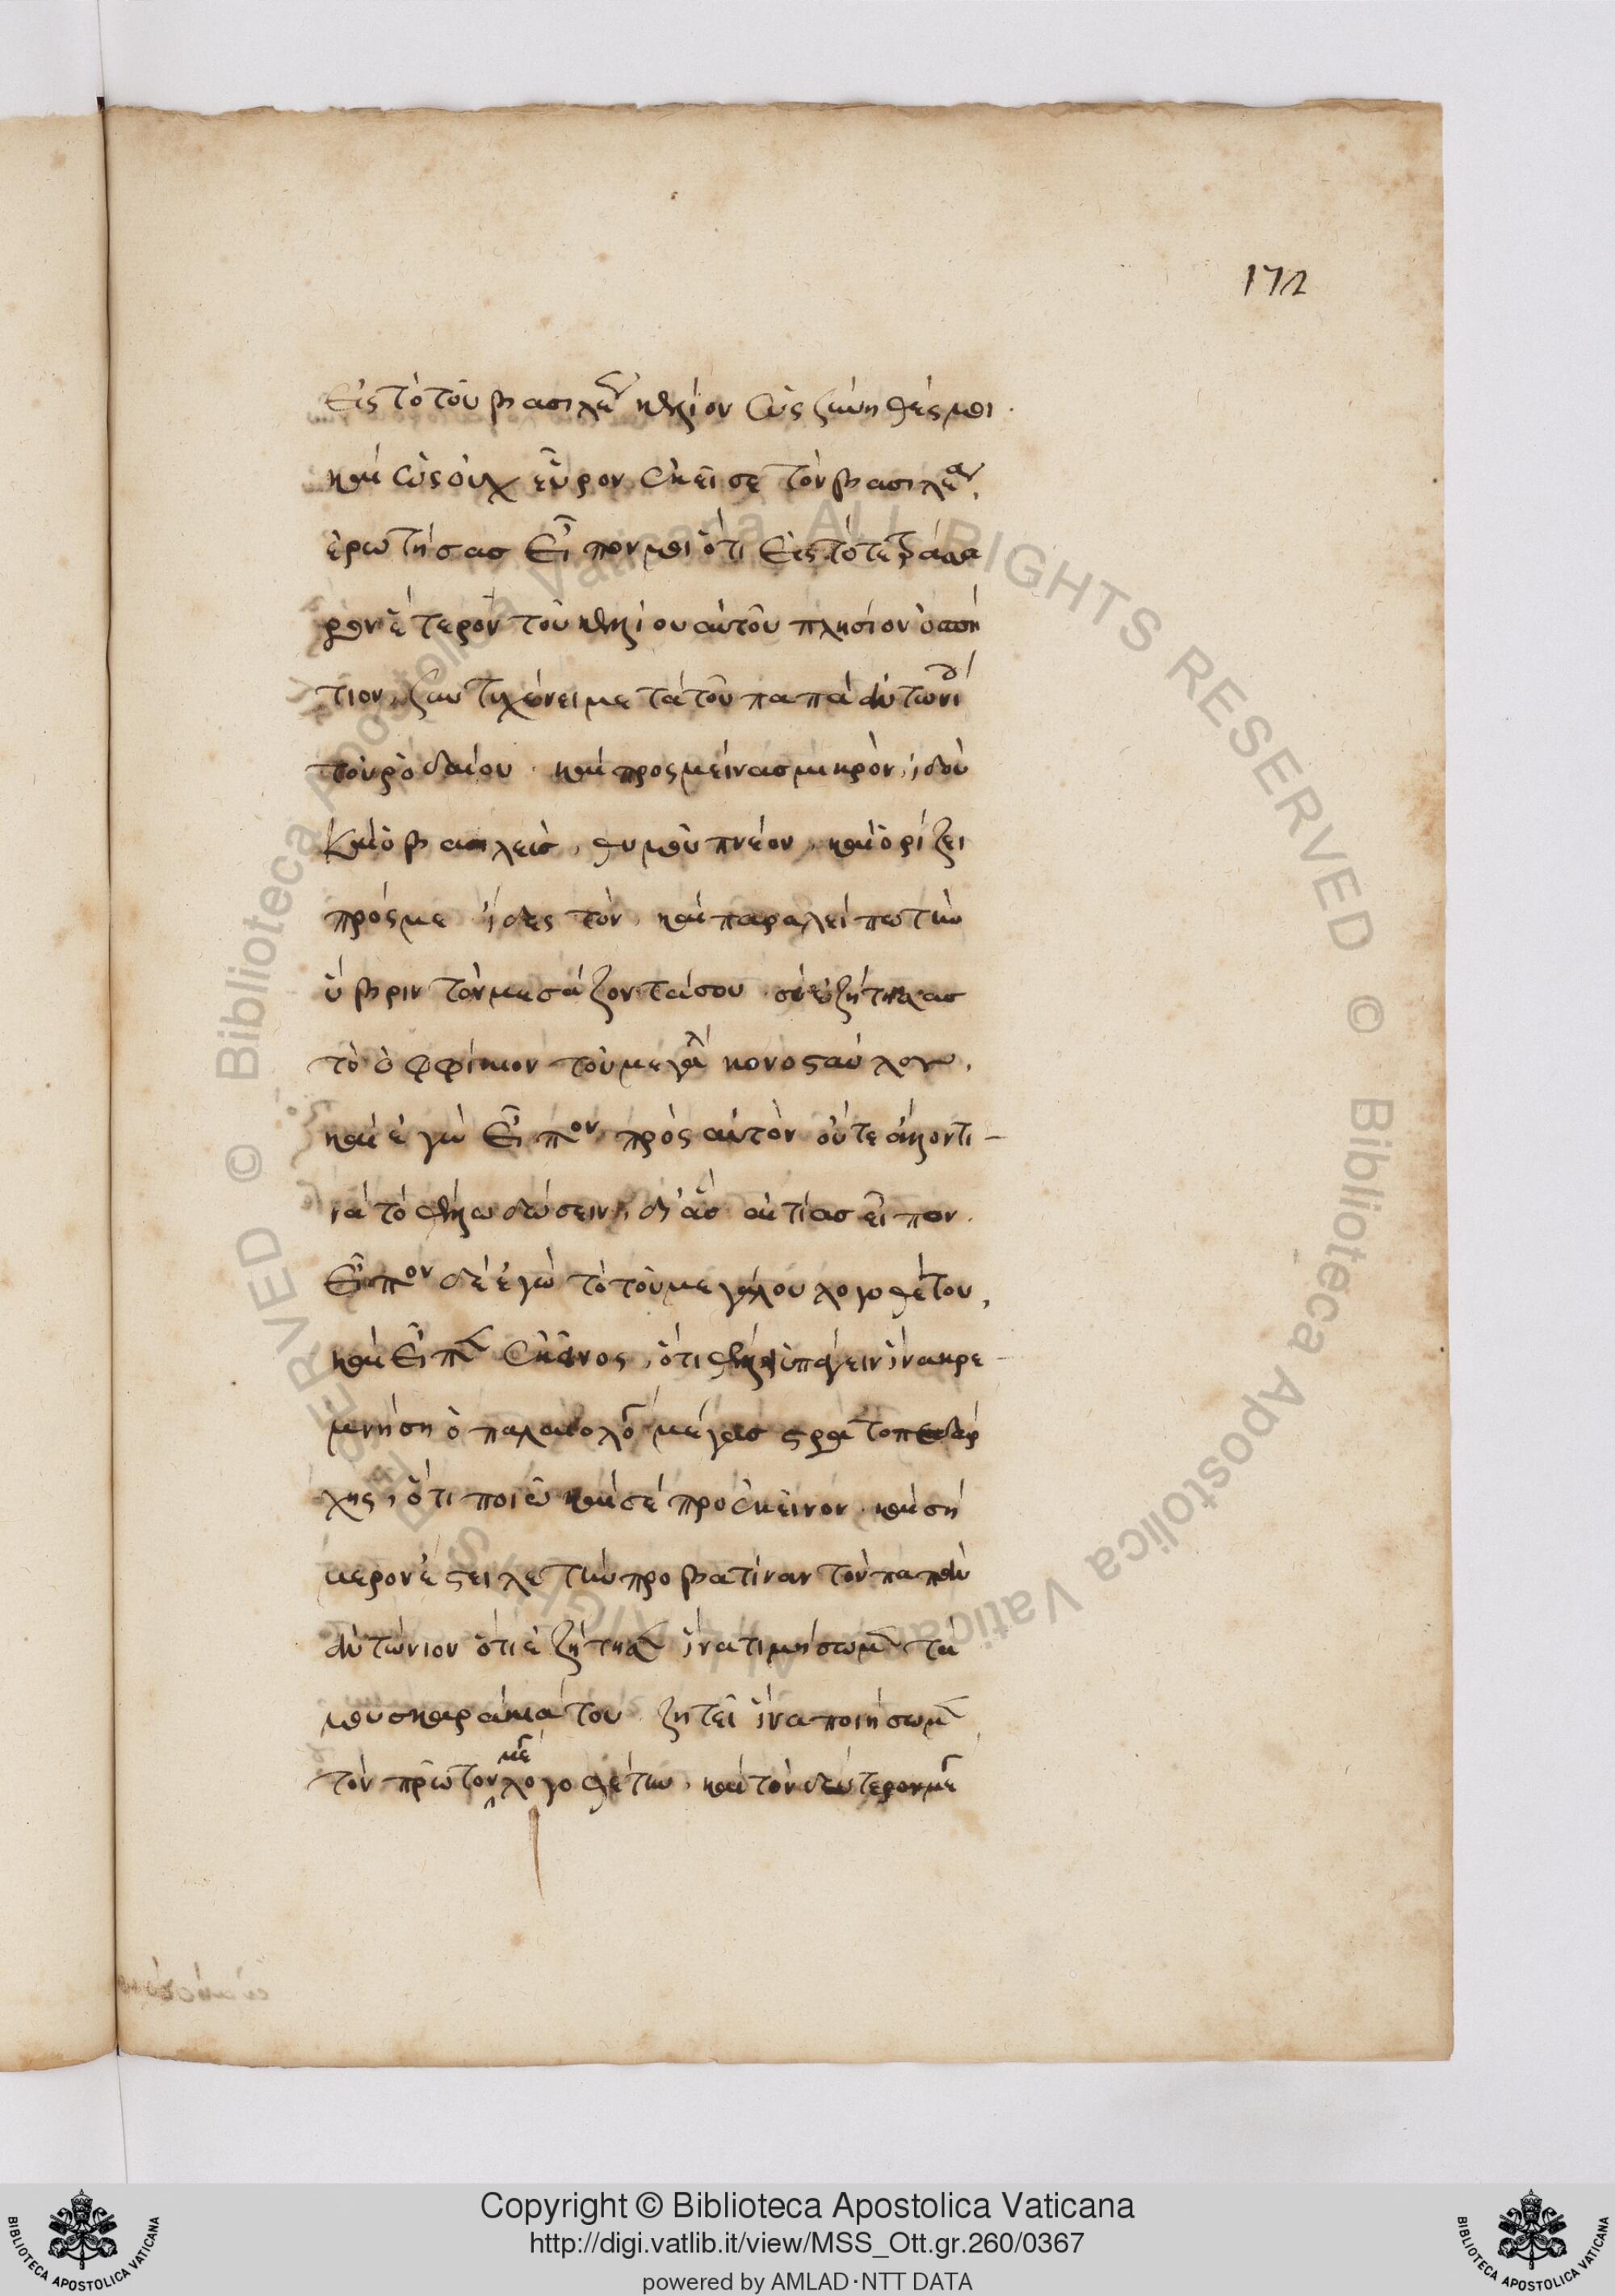 172
Εἰς τὸ τοῦ βασιλέως κελλίον ὡς συνήθές μοι.
καὶ ὡς οὐχ εὗρον ἐκεῖσε τὸν βασιλέαν,
ἐρωτήσας εἶπον μοι ὅτι εἰς τὸ τετράγω
ρον ἕτερον τοῦ κελλίου αὐτοῦ πλησίον
τιον, συντυχένει μετὰ τοῦ παπᾶ ἀντωνί
τοῦ ῥοδαίου. καὶ προσμείνας μικρὸν, ἰδοὺ
καὶ ὁ βασιλεὺς, θυμοῦ πνέον, καὶ ὁρίζει
πρός με ἴδες τὸν, καὶ παραλείπω τὴν
ὕβριν τὸν μεσάζοντά σου. σὲ ἐζήτησας
τὸ ὀφφίκιον τοῦ μεγάλ κονοσταύλου.
καὶ ἐγὼ εἶπον πρὸς αὐτὸν οὔτε ἄκοντι
νὰ τὸ θέλω δώσειν, δι' ἃς αἰτίας εἶπον.
Εἶπον δὲ ἐγὼ τὸ τοῦ μεγάλου λογοθέτου,
καὶ εἶπεν ἐκεῖνος, ὅτι θέλει ὑπάγειν ἵνα κρε
μνήση ὁ παλαιολόγ μέγας στρατοπεδάρ
χης, ὅτι ποιῶ καὶ σὲ πρὸ ἐκεῖνον. καὶ σή
μερον ἔστειλε τὴν προβατίναν τὸν παπᾶν
ἀντώνιον ὅτι ἐζήτησεν ἵνα τιμήσωμεν τὰ
μουσκαράκιά του. ζητεῖ ἵνα ποιήσωμεν
τὸν πρῶτον μὲ λογοθέτην, καὶ τὸν δεύτερον μὲ
Copyright © Biblioteca Apostolica Vaticana
http://digi.vatlib.it/view/MSS_Ott.gr.260/0367
powered by AMLAD·NTT DATA
BIBLIOTECA APOSTOLICA VATICANA
BIBLIOTECA APOSTOLICA VATICANA
© Biblioteca Apostolica Vaticana ALL RIGHTS RESERVED
© Biblioteca Apostolica Vaticana ALL RIGHTS RESERVED